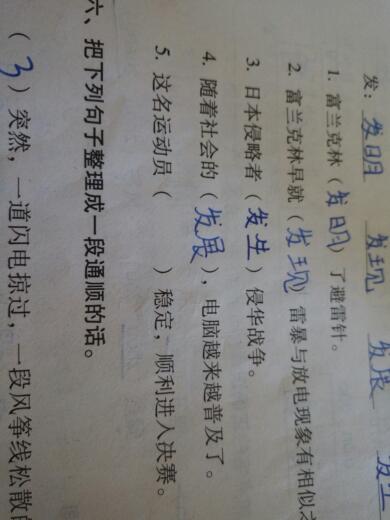 发：发明 发现 发展 发生
1. 富兰克林（发明）了避雷针。
2. 富兰克林早就（发现）雷暴与放电现象有相似之
3. 日本侵略者（发生）侵华战争。
4. 随着社会的（发展），电脑越来越普及了。
5. 这名运动员（ ）稳定，顺利进入决赛。
六、把下列句子整理成一段通顺的话。
（3）突然，一道闪电掠过，一段风筝线松散的